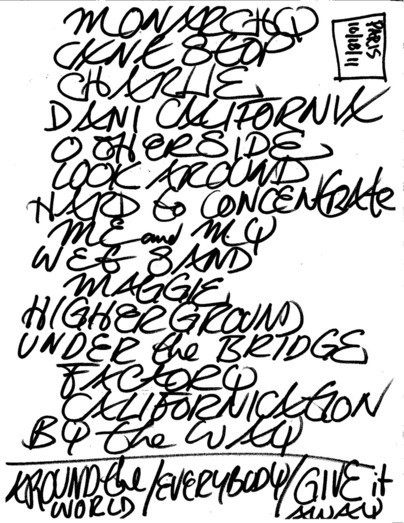 MONARCHY
CAN'T STOP
CHARLIE
DANI CALIFORNIA
OTHERSIDE
LOOK AROUND
HARD to CONCENTRATE
ME and MY
WET SAND
MAGGIE
HIGHER GROUND
UNDER the BRIDGE
FACTORY
CALIFORNICATION
BY the WAY
AROUND the WORLD / EVERYBODY / GIVE it AWAY
PARIS
10/18/11